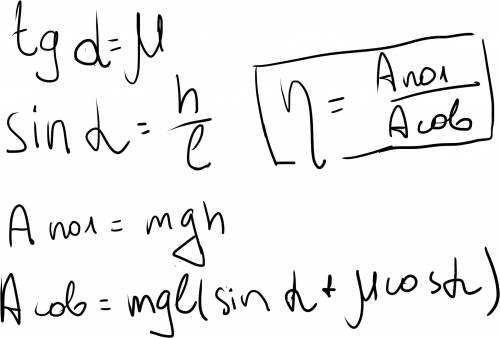 tg α = μ
sin α = h/l
η = Aпол/Aсов
Aпол = mgh
Aсов = mgl(sin α + μcosα)